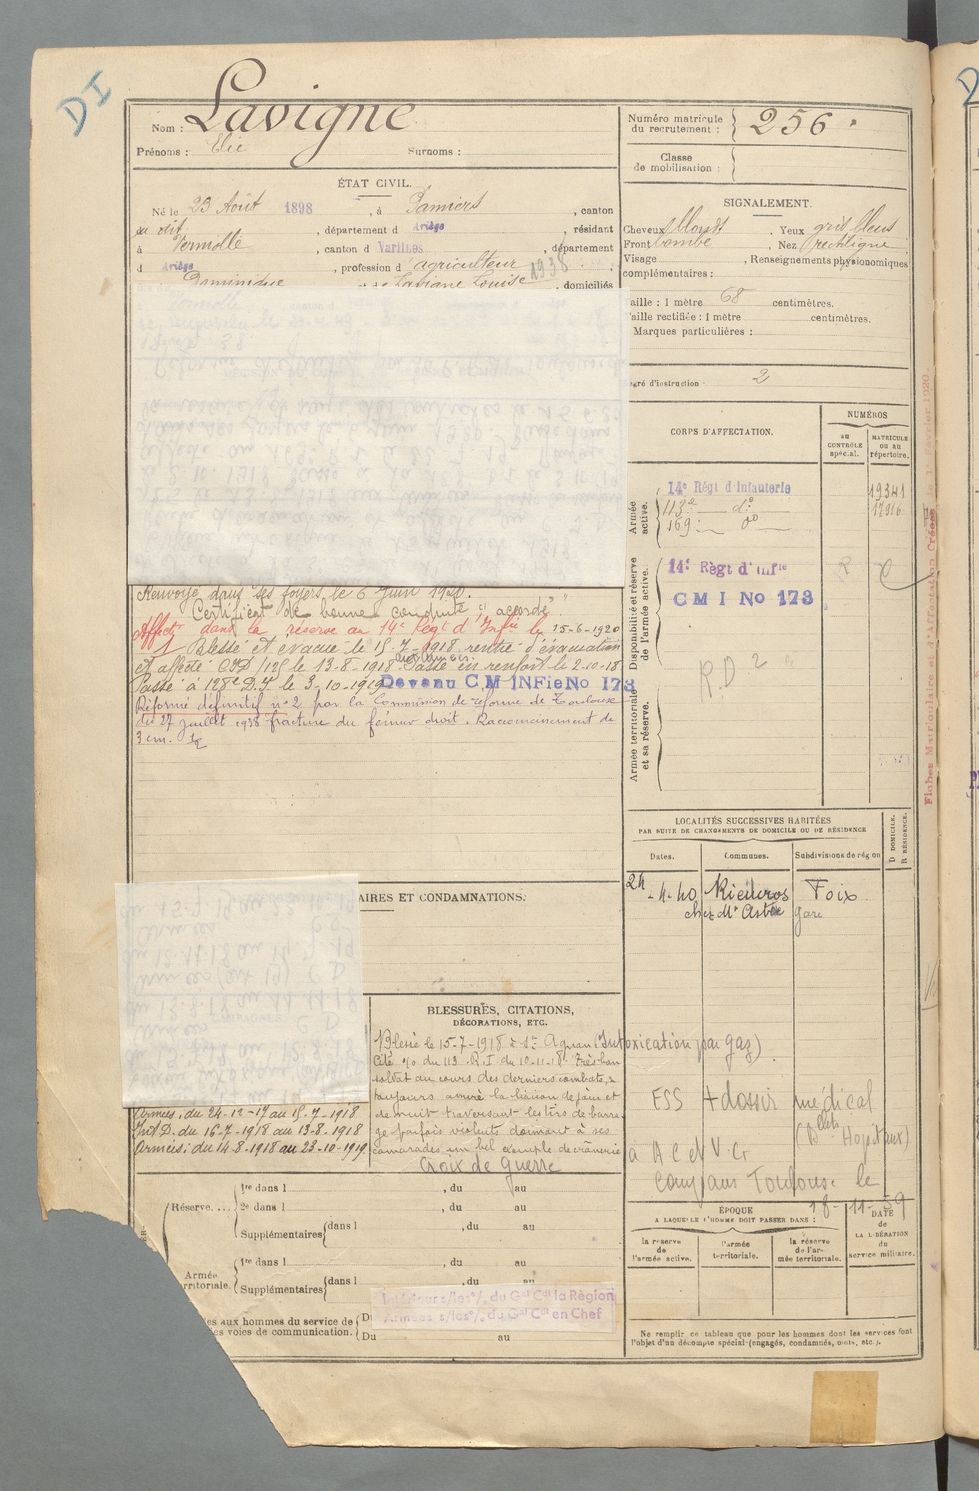 DI
Nom : Lavigne
Prénoms : Elie Surnoms :
ÉTAT CIVIL.
Né le 23 Août 1898, à Pamiers, canton
du dit, département d Ariège, résidant
à Verniolle, canton d Varilhes, département
d Ariège, profession d'agriculteur 1938
Dominique Louise, domiciliés
Numéro matricule du recrutement : 256
Classe de mobilisation :
SIGNALEMENT.
Cheveux blonds, Yeux gris bleus
Front bombé, Nez rectiligne
Visage, Renseignements physionomiques
complémentaires :
Taille : 1 mètre 68 centimètres.
Taille rectifiée : 1 mètre centimètres.
Marques particulières :
Degré d'instruction 2
CORPS D'AFFECTATION.
NUMÉROS
au CONTRÔLE spécial.
MATRICULE ou au répertoire.
Armée active.
14e Régt d'Infanterie 19341
113e do 17916
169e do
Disponibilité et réserve de l'armée active.
14e Régt d'Infie R
C M I No 173
R.D 2
Armée territoriale et sa réserve.
Renvoyé dans ses foyers le 6 Juin 1920.
Certificat de bonne conduite "accordé"
Affecté dans la réserve au 14e Régt d'Infie le 15-6-1920
Blessé et évacué le 15-7-1918 rentré d'évacuation
et affecté 125 le 13-8-1918 Passé en renfort le 2-10-18
Passé à 128e D.I le 3-10-1919 Devenu C M INFie No 173
Réformé définitif no 2 par la Commission de réforme de Toulouse
du 27 juillet 1938 fracture du fémur droit. Raccourcissement de
3 cm.
Fiches Matriculaire et d'affectation Créées le 1er Février 1920.
LOCALITÉS SUCCESSIVES HABITÉES
PAR SUITE DE CHANGEMENTS DE DOMICILE OU DE RÉSIDENCE
Dates. Communes. Subdivisions de région
D DOMICILE. R RÉSIDENCE.
24-4-40 Rieucros Foix
chez Mr gare
AIRES ET CONDAMNATIONS.
BLESSURES, CITATIONS,
DÉCORATIONS, ETC.
Blessé le 15-7-1918 à St Agnan (Intoxication par gaz).
Cité % du 113 R.I du 10-11-18 "Très bon
soldat au cours des derniers combats, a
toujours assuré la liaison de jour et
de nuit traversant les tirs de barra-
ge parfois violents donnant à ses
camarades un bel exemple de crânerie
Croix de guerre
Armées : du 24-12-17 au 15-7-1918
Int D. du 16-7-1918 au 13-8-1918
Armées : du 14-8-1918 au 23-10-1919
ESS + dossier médical
(Blets Hopitaux)
à A C et V G
Toulouse le
18-11-59
Réserve....
1re dans l, du au
2e dans l, du au
Supplémentaires dans l, du au
Armée territoriale.
1re dans l, du au
Supplémentaires dans l, du au
Intérieur s/les % du Gal Cdt la Région
Armées s/les % du Gal Cdt en Chef
es aux hommes du service de
es voies de communication.
Du
Du au
ÉPOQUE
A LAQUELLE L'HOMME DOIT PASSER DANS :
la réserve de l'armée active.
l'armée territoriale.
la réserve de l'armée territoriale.
DATE de LA LIBÉRATION du service militaire.
Ne remplir ce tableau que pour les hommes dont les services font
l'objet d'un décompte spécial (engagés, condamnés, omis, etc.).